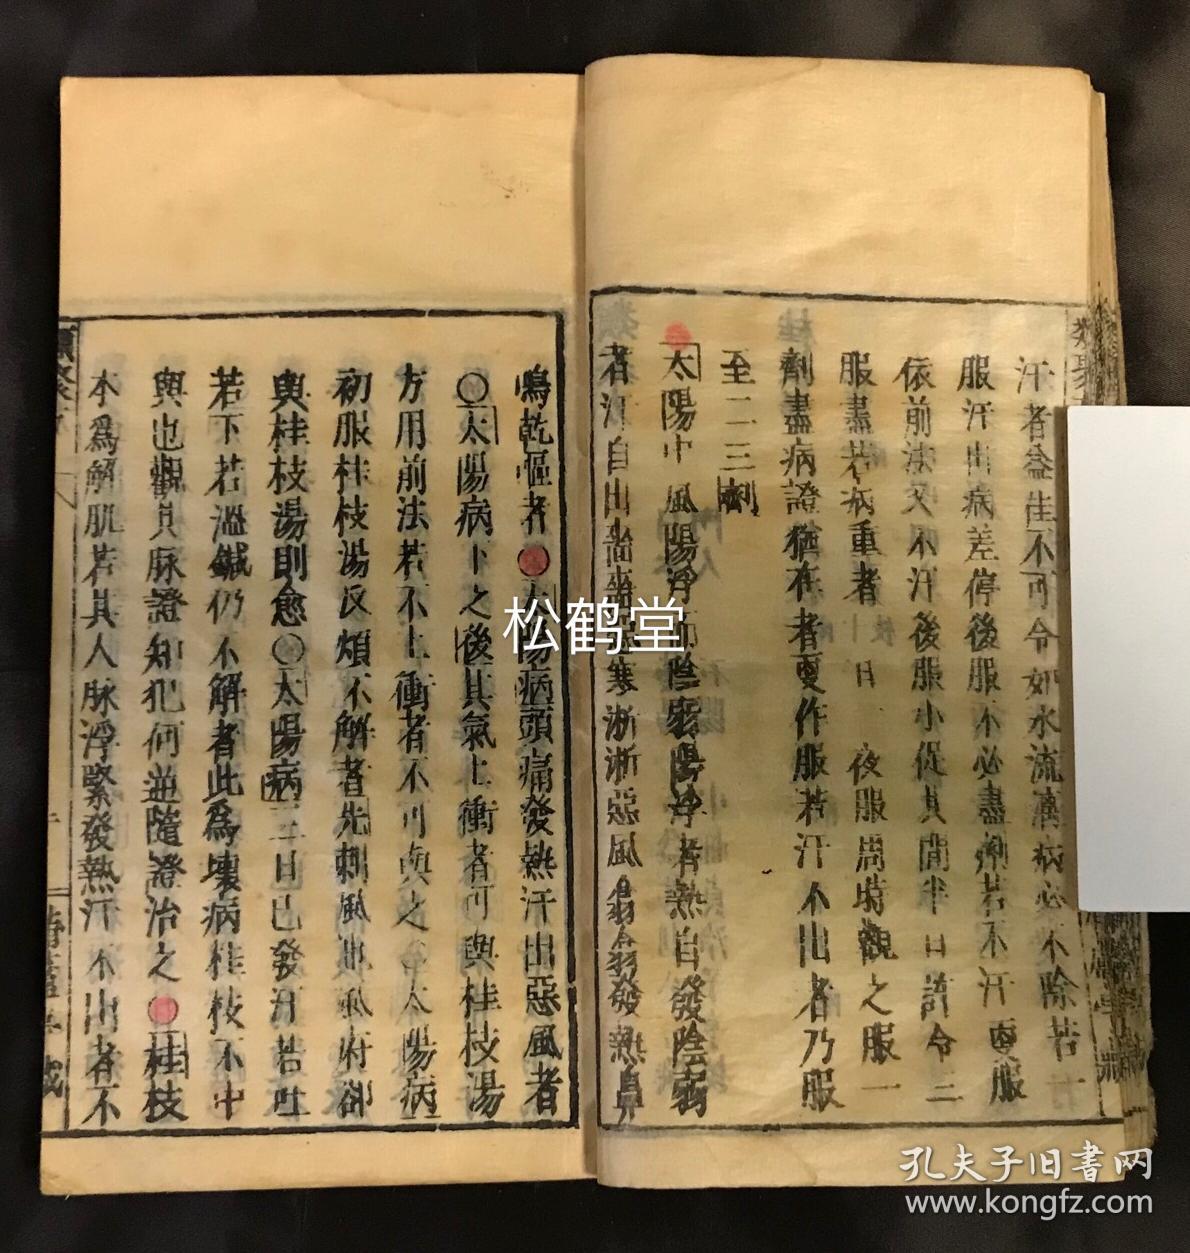 汗者益佳不可令如水流漓病必不除若一
服汗出病差停後服不必盡劑若不汗更服
依前法又不汗後服小促其間半日許令三
服盡若病重者一日一夜服周時觀之服一
劑盡病證猶在者更作服若汗不出者乃服
至二三劑
太陽中風陽浮而陰弱陽浮者熱自發陰弱
者汗自出嗇嗇惡寒淅淅惡風翕翕發熱鼻
鳴乾嘔者●太陽病頭痛發熱汗出惡風者
○太陽病下之後其氣上衝者可與桂枝湯
方用前法若不上衝者不可與之○太陽病
初服桂枝湯反煩不解者先刺風池風府卻
與桂枝湯則愈○太陽病三日已發汗若吐
若下若溫鍼仍不解者此為壞病桂枝不中
與也觀其脉證知犯何逆隨證治之●桂枝
本為解肌若其人脉浮緊發熱汗不出者不
類聚
松鹤堂
孔夫子旧书网
www.kongfz.com